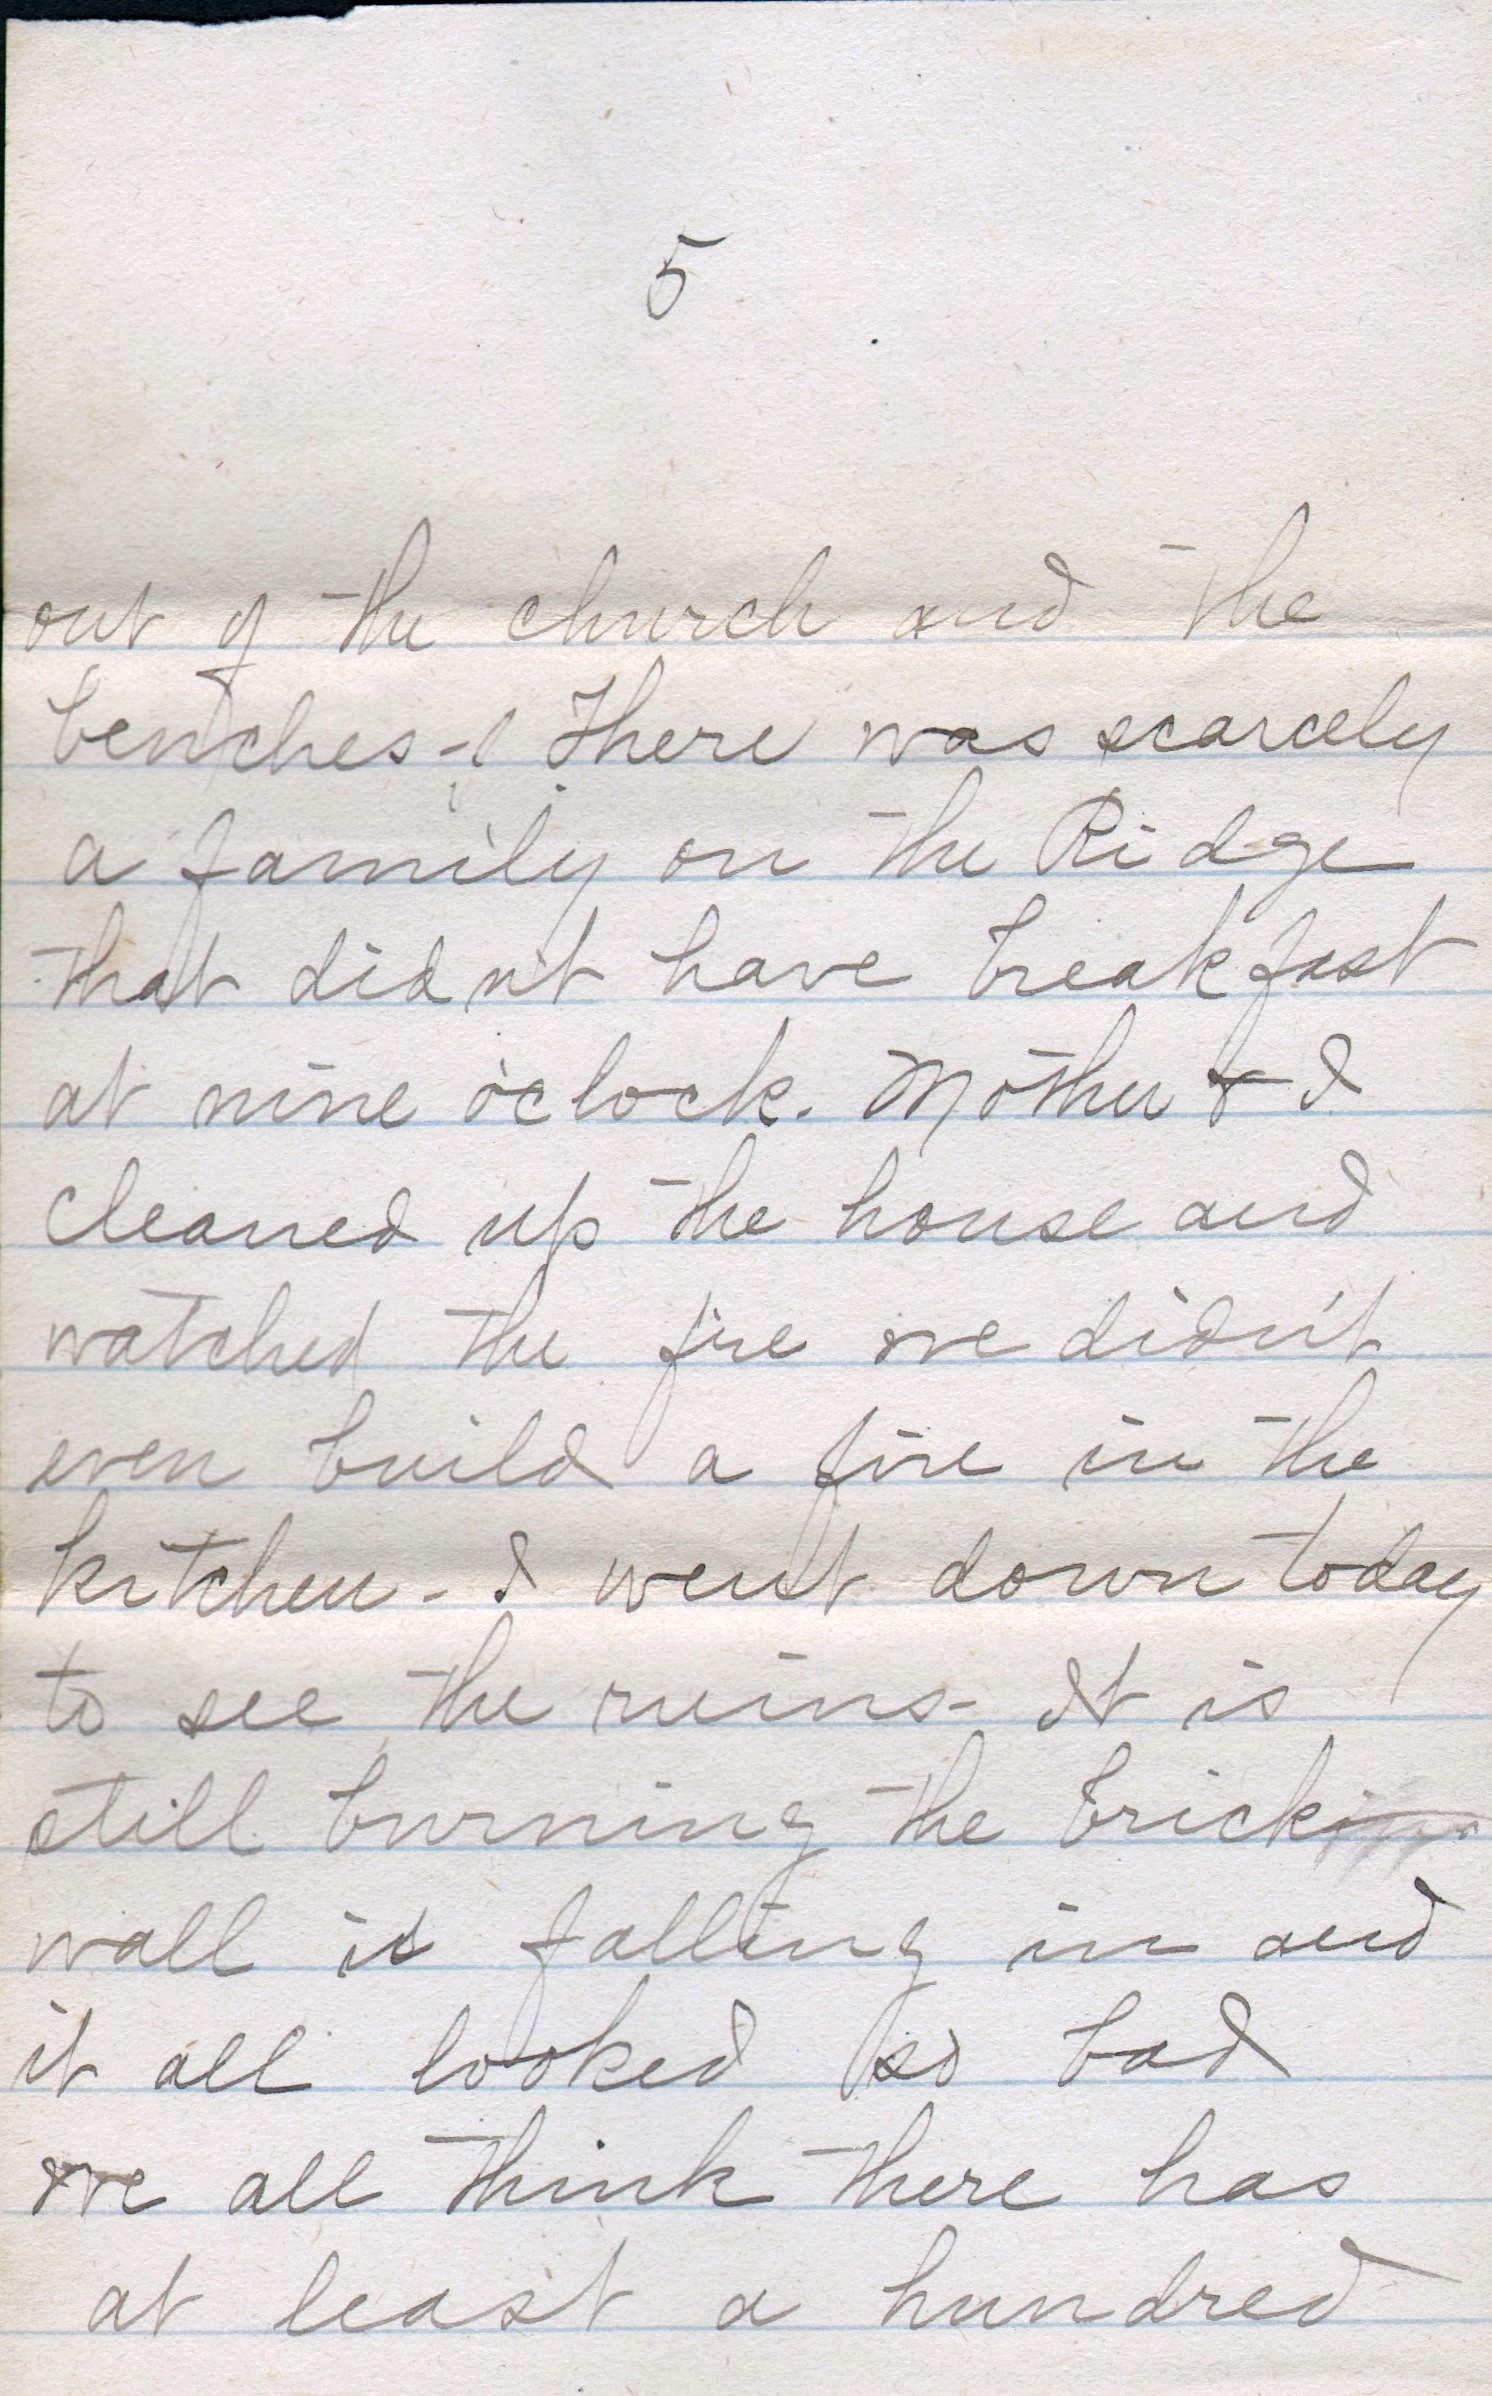 5
out of the church and the
benches - There was scarcely
a family on the Ridge
that didn't have breakfast
at nine o'clock. Mother & I
cleaned up the house and
watched the fire we didn't
even build a fire in the
kitchen - I went down today
to see the ruins - It is
still burning the brick
wall is falling in and
it all looked so bad
we all think there has
at least a hundred